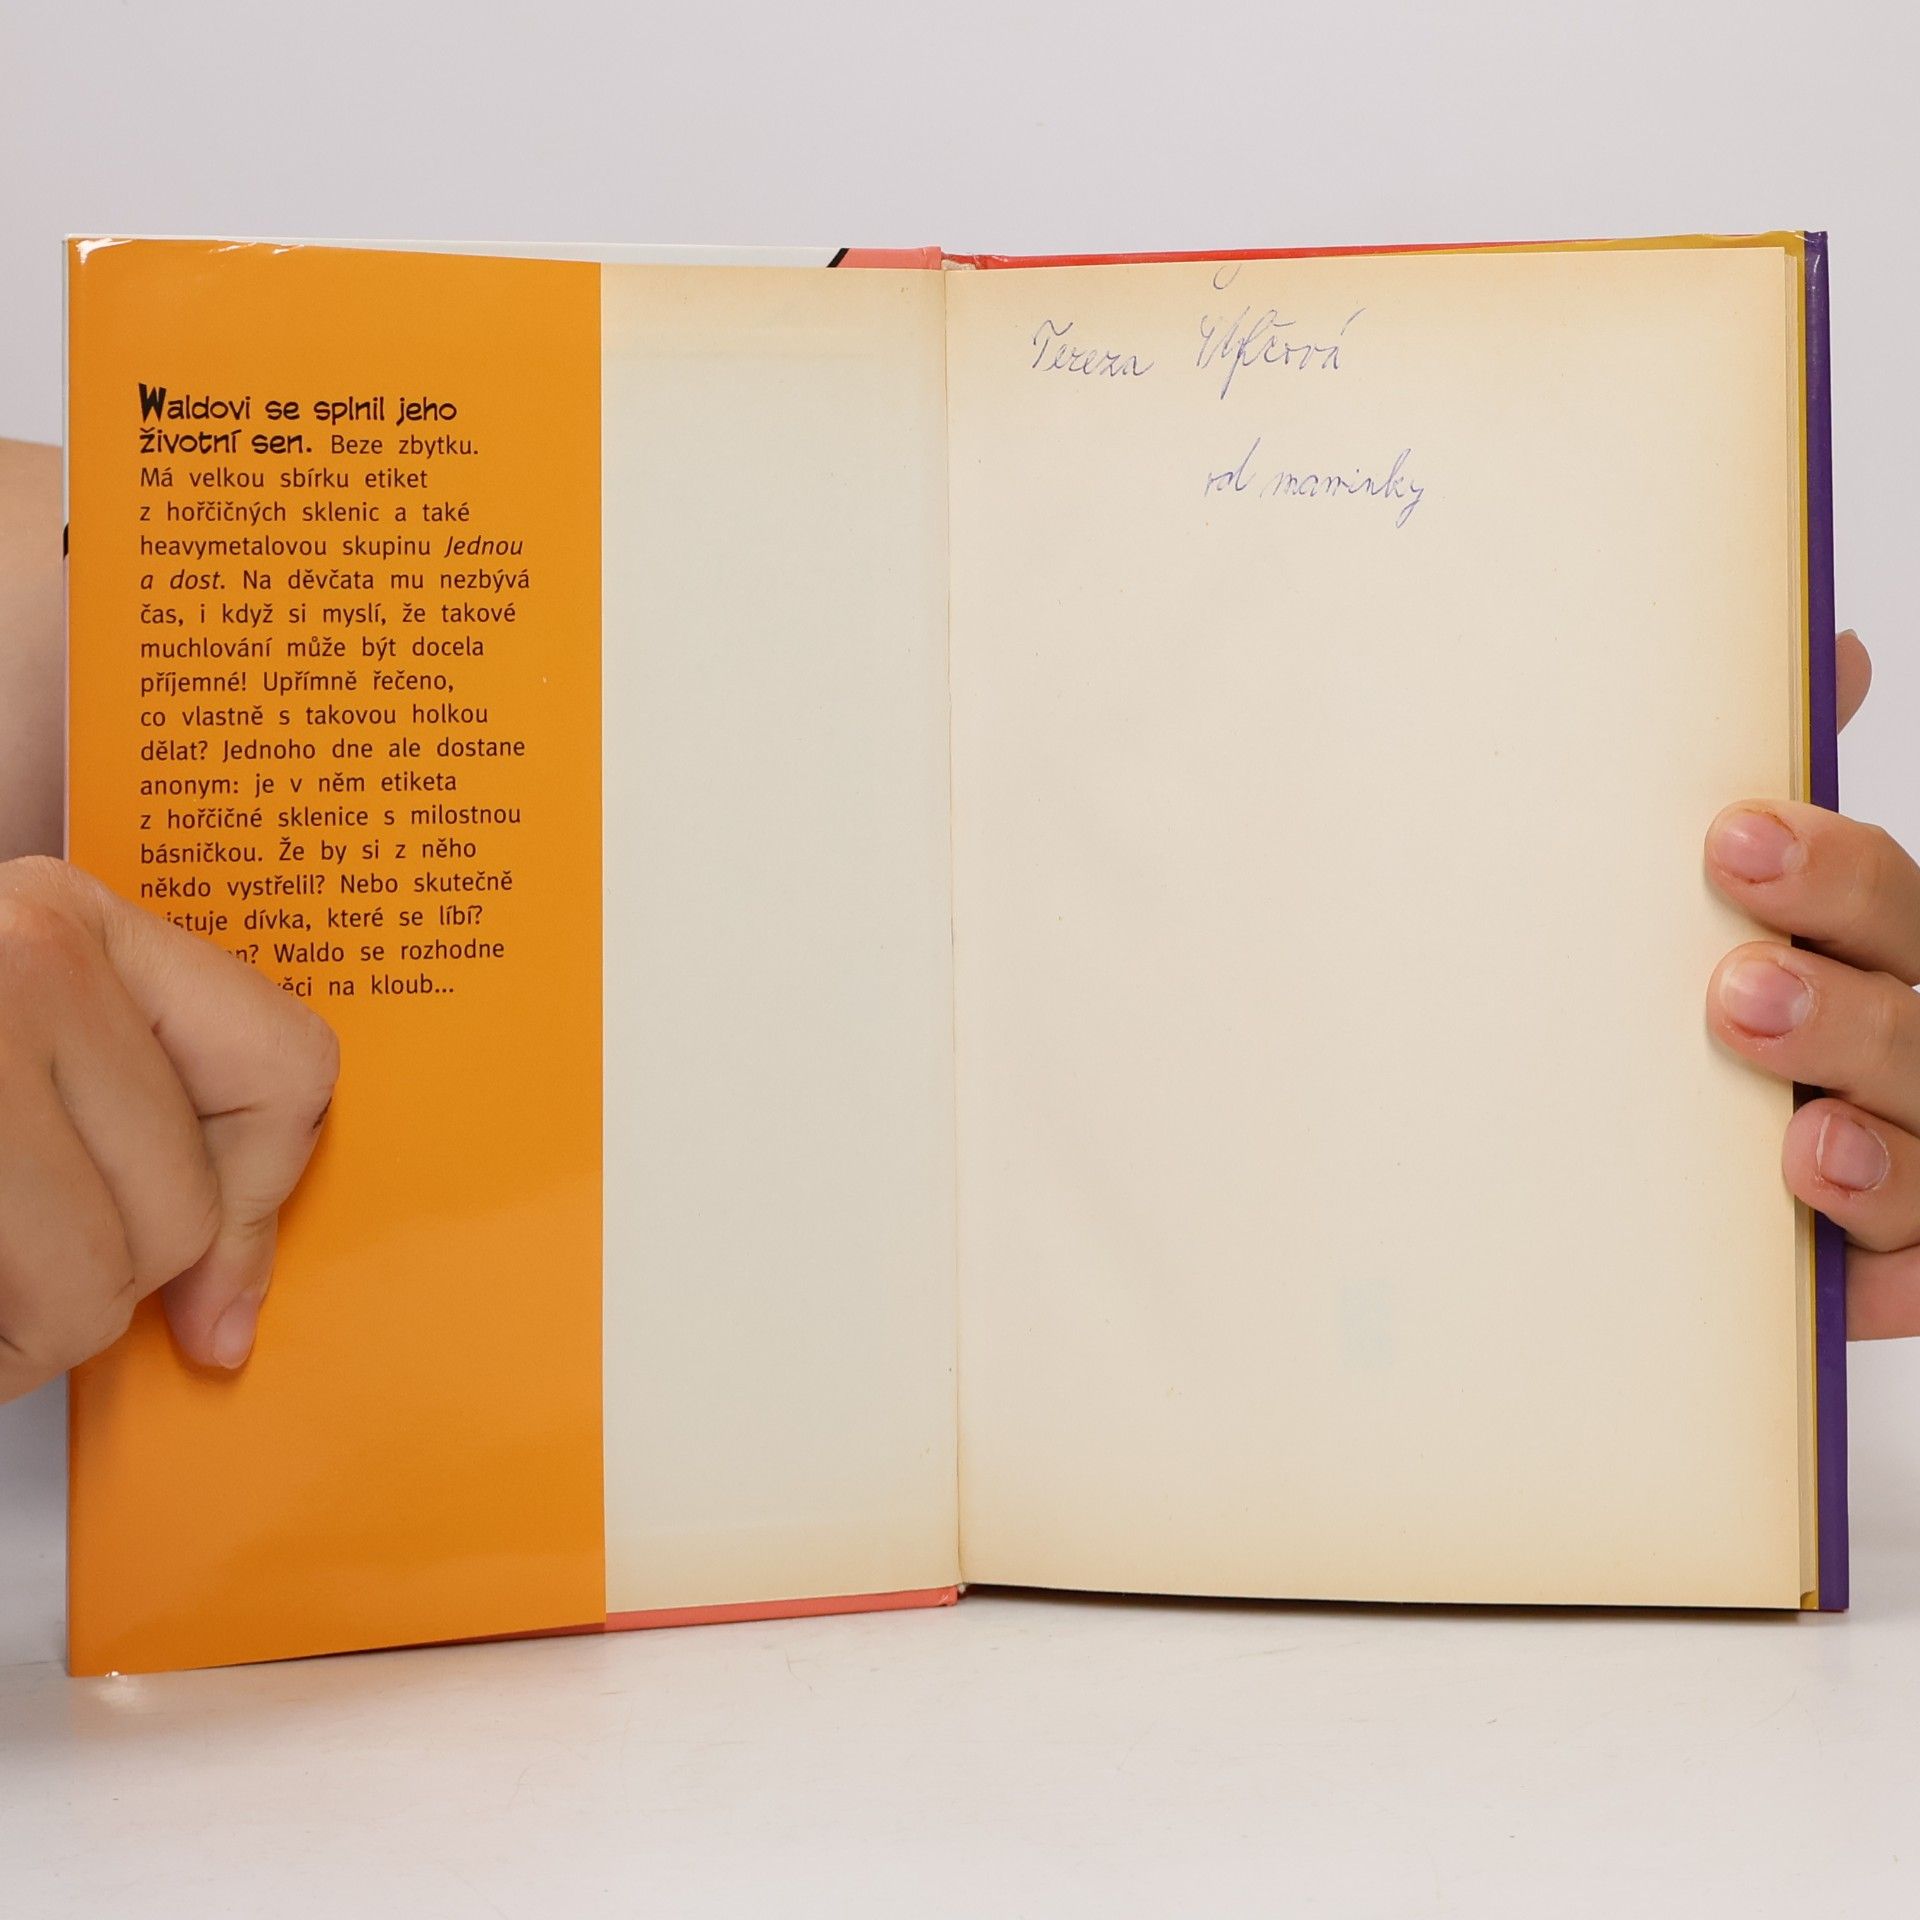 Waldovi se splnil jeho
životní sen. Beze zbytku.
Má velkou sbírku etiket
z hořčičných sklenic a také
heavymetalovou skupinu Jednou
a dost. Na děvčata mu nezbývá
čas, i když si myslí, že takové
muchlování může být docela
příjemné! Upřímně řečeno,
co vlastně s takovou holkou
dělat? Jednoho dne ale dostane
anonym: je v něm etiketa
z hořčičné sklenice s milostnou
básničkou. Že by si z něho
někdo vystřelil? Nebo skutečně
dívka, které se líbí?
Waldo se rozhodne
na kloub...
Tereza
od maminky